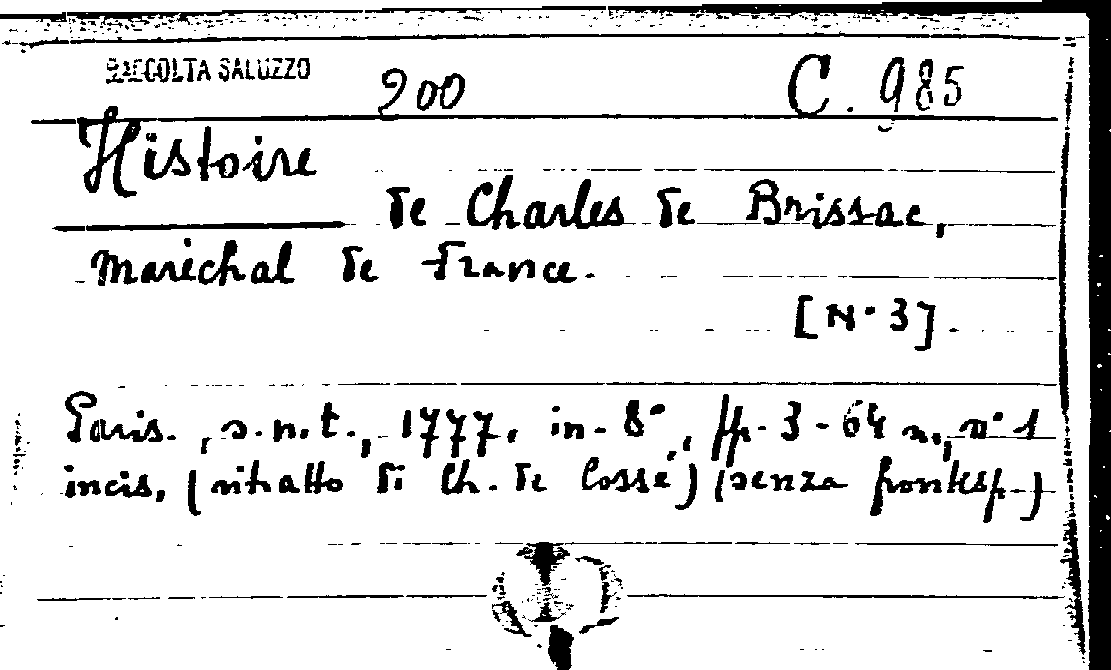 RACCOLTA SALUZZO 200 C. 985
Histoire
de Charles de Brissac,
Maréchal de France.
[N. 3].
Paris., s.n.t., 1777, in-8°, pp. 3-64 n., n° 1
incis, (ritratto di Ch. de Cossé) (senza frontesp.)